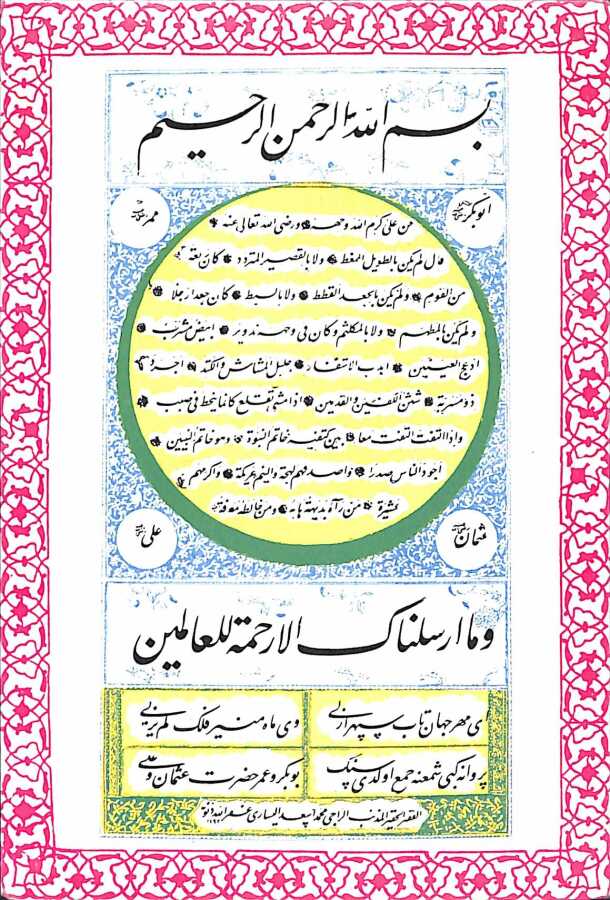 بسم الله الرحمن الرحيم
ابوبكر
عمر
عن على كرم الله وجهه ورضى الله تعالى عنه
قال لم يكن بالطويل الممغط ولا بالقصير المتردد كان ربعة
من القوم ولم يكن بالجعد القطط ولا بالسبط كان جعدا رجلا
ولم يكن بالمطهم ولا بالمكلثم وكان فى وجهه تدوير ابيض مشرب
ادعج العينين اهدب الاشفار جليل المشاش والكتد اجرد
ذو مسربة شثن الكفين والقدمين اذا مشى تقلع كانما ينحط فى صبب
واذا التفت التفت معا بين كتفيه خاتم النبوة وهو خاتم النبيين
اجود الناس صدرا واصدقهم لهجة والينهم عريكة واكرمهم
عشيرة من رآه بديهة هابه ومن خالطه معرفة
عثمان
على
وما ارسلناك الا رحمة للعالمين
اى مهر جهان تاب سپهر ازلى
وى ماه منير فلك لم يزلى
پروانه كبى شمعنه جمع اولدى سنك
بوبكر و عمر حضرت عثمان و على
الفقير الحقير المذنب الراجى محمد اسعد اليسارى غفر الله ذنوبه